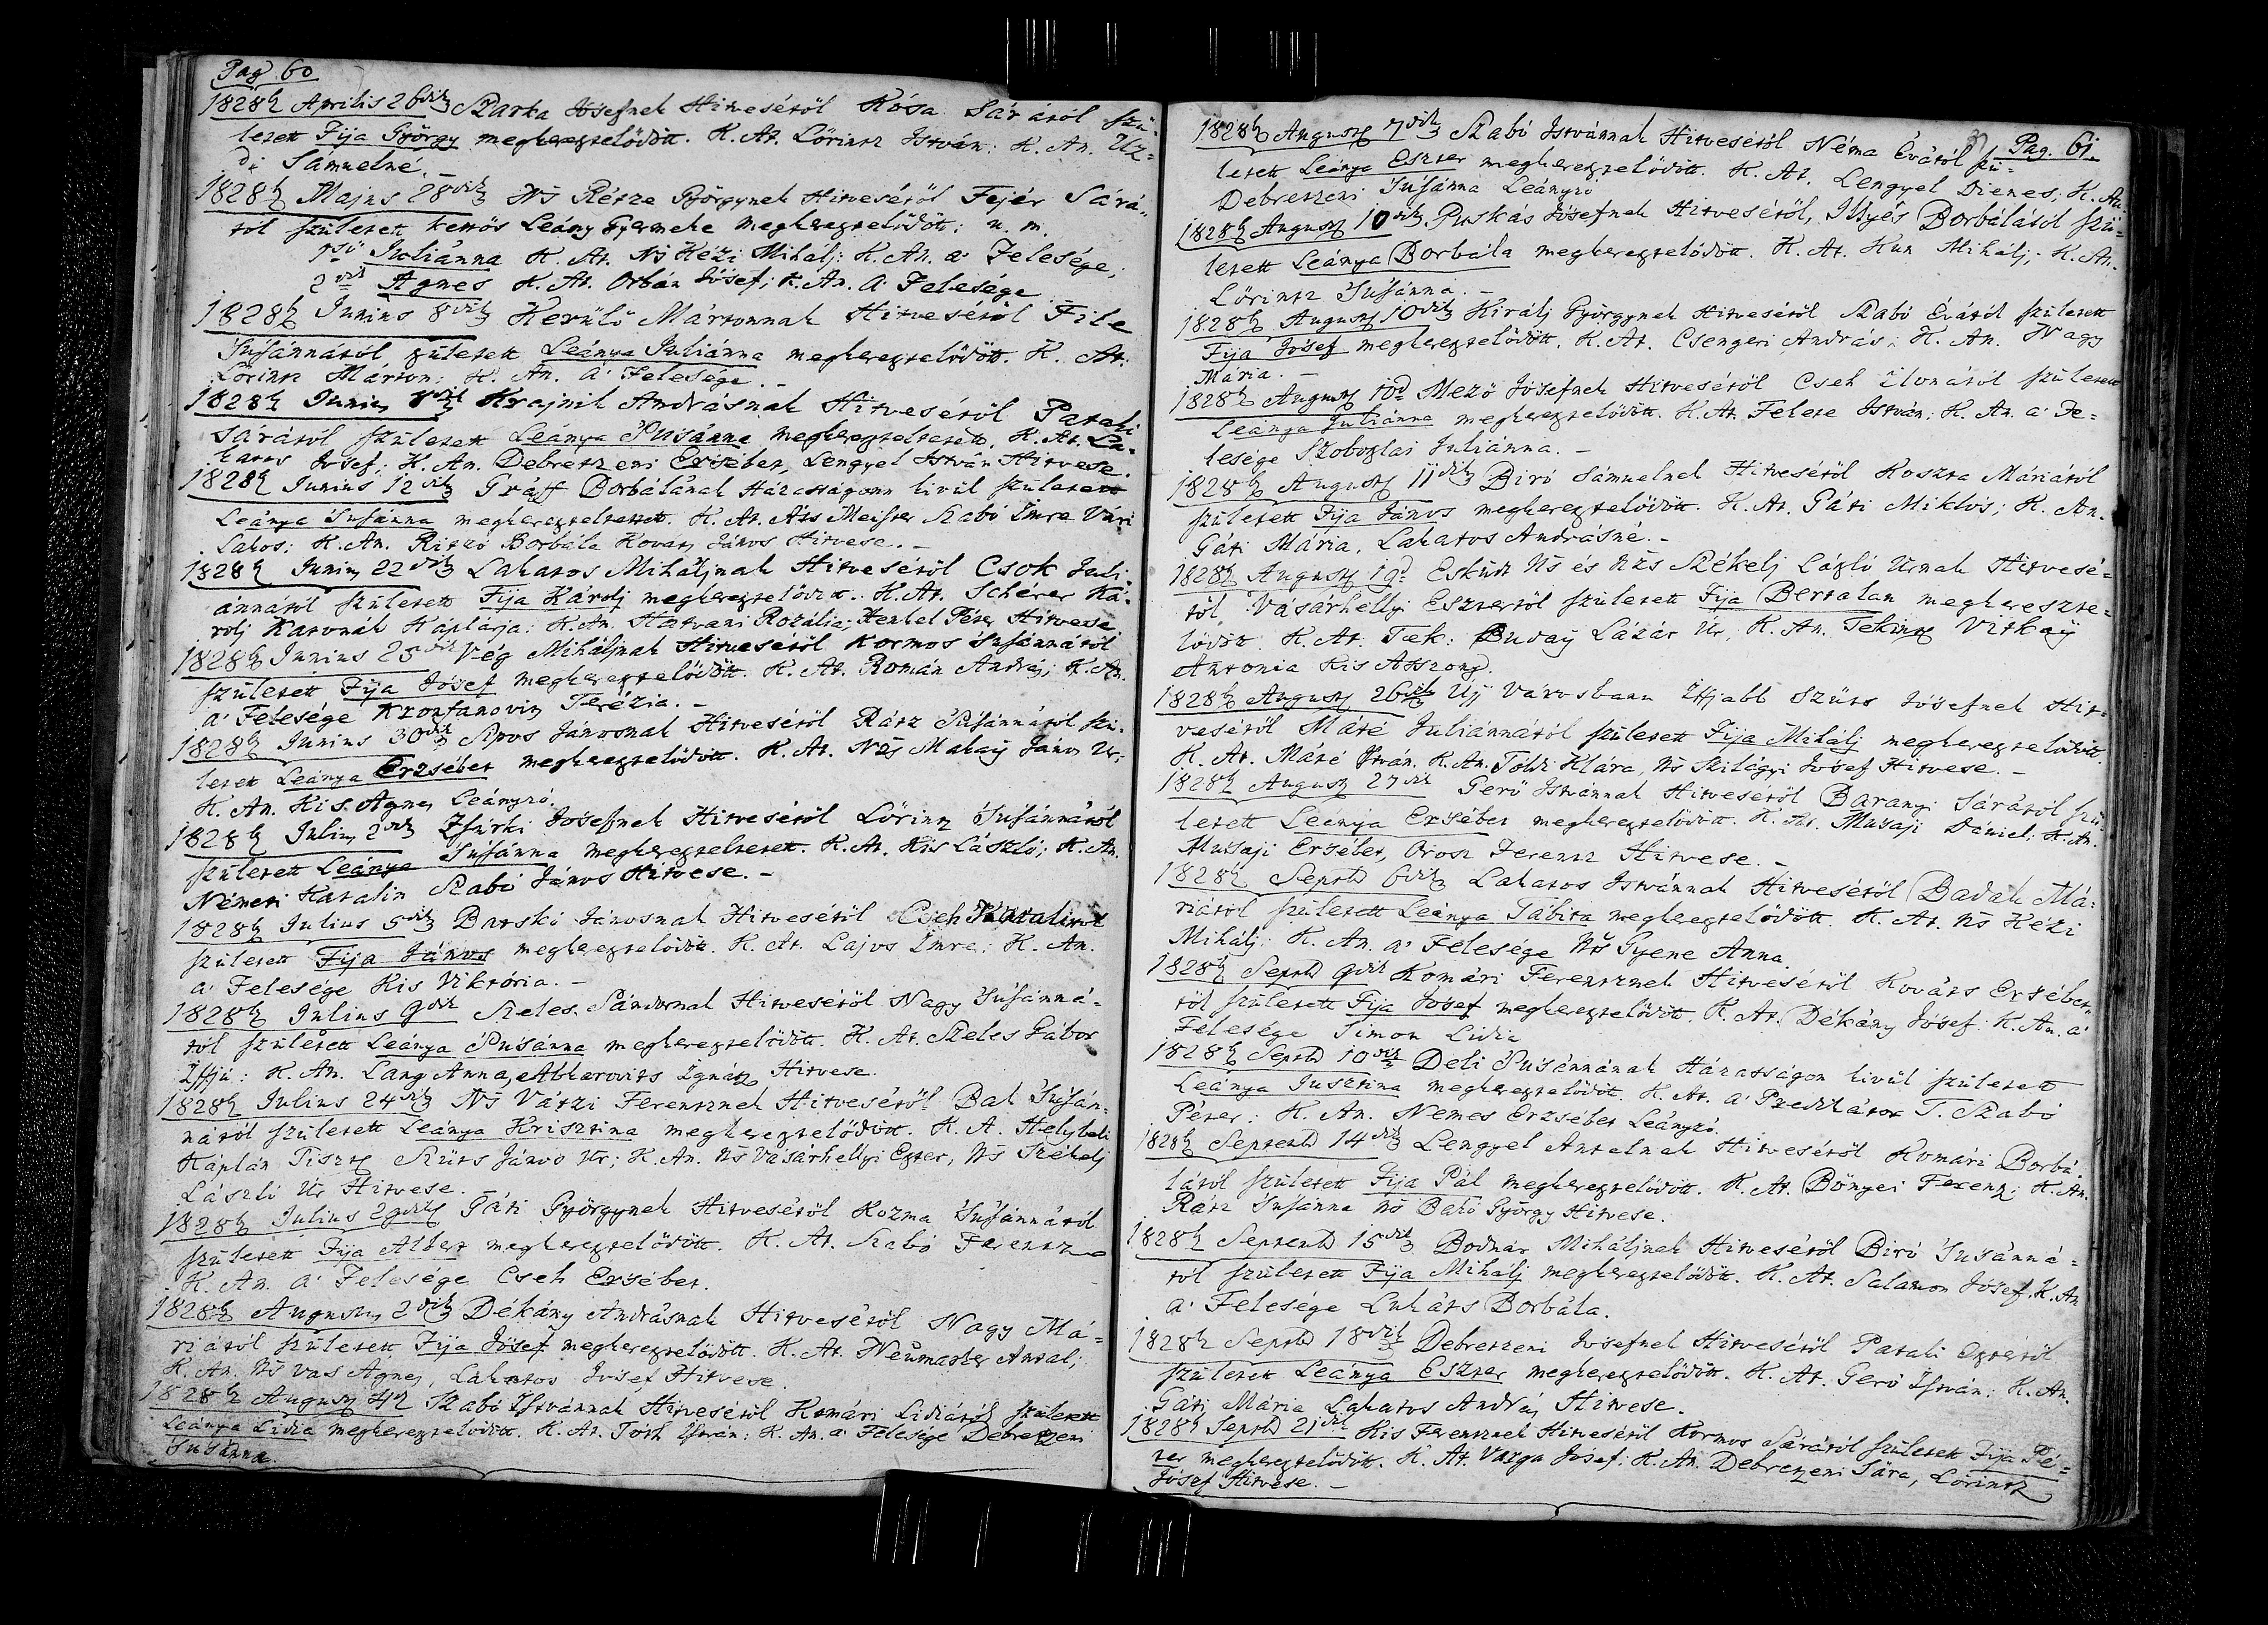 Pag. 60
1828b Aprilis 26dik Szarka Jósefnek Hitvesétöl Kósa Sárától szü-
letett Fija György megkereszteltetödött. K. At. Lörintz István: K. An. Uz-
di Samuelné. –
1828b Majus 28dik Ns Rétze Györgynek Hitvesétöl Fejér Sárá-
tól született kettös Leány Gyermeke megkeresztelödött: u. m.
1sö Juliánna K. At. Ns Kézi Mihálj: K. An. a' Felesége;
2dik Agnes K. At. Orbán Jósef; K. An. a' Felesége. –
1828b Junius 8dik Kerülö Mártonnak Hitvesétöl File
Susánnától született Leánya Juliánna megkeresztelödött. K. At.
Lörintz Márton: K. An. a' Felesége. –
1828b Junius Krajnik Andrásnak Hitvesétöl Pataki
Sárától született Leánya Susánna megkereszteltetett. K. At. La-
katos Josef; K. An. Debretzeni Ersébet, Lengyel István Hitvese.
1828b Junius 12dik Gráff Borbálának Házasságonn kivül született
Leánya Susánna megkereszteltetett. K. At. Áts Meister Szabó Imre Vári
Lakos: K. An. Ritzó Borbála Kovats János Hitvese. –
1828b Junius 22dik Lakatos Miháljnak Hitvesétöl Csok Juli-
ánnától született Fija Károlj megkeresztelödött. K. At. Scherer Ká-
rolj Katonák Káplárja: K. An. Hatvani Rozália; Henkel Péter Hitvese
1828b Junius 25dik Vég Miháljnak Hitvesétöl Kormos Susánnától
született Fija Jósef megkeresztelödött. K. At. Román András; K. An.
a' Felesége Terézia. –
1828b Junius 30dik Sipos Jánosnak Hitvesétöl Rátz Susánnától szü-
letett Leánya Erzsébet megkeresztelödött. K. At. Nzs Makaÿ János Ur;
K. An. Kis Agnes Leányzó.
1828b Julius 2dik Zsúrki Josefnek Hitvesétöl Lörintz Susánnától
született Leánya Susánna megkereszteltetett. K. At. Kis László; K. An.
Németi Katalin Szabó János Hitvese. –
1828b Julius 5dik Barskó Jánosnak Hitvesétöl Cseh Katalintol
született Fija János megkeresztelödött. K. At. Lajos Imre: K. An.
a' Felesége Kis Viktória. –
1828b Julius 9dik Szeles Sándornak Hitvesétöl Nagy Susánná-
tól született Leánya Susánna megkeresztelödött. K. At. Szeles Gábor
Iffjú: K. An. Lang Anna, Ignátz Hitvese.
1828b Julius 24dik Ns Vátzi Ferentznek Hitvesétöl Bak Susán-
nától született Leánya Krisztina megkeresztelödött. K. A. Helybeli
Káplán Tiszt. Szüts János Ur; K. An. Ns Vásárhellyi Eszter, Ns Székelj
László Ur Hitvese.
1828b Julius 29dik Gáti Györgynek Hitvesétöl Kozma Susánnától
született Fija Albert megkeresztelödött. K. At. Szabó Ferentz
K. An. a' Felesége Cseh Ersébet.
1828b Augustus 2dik Dékány Andrásnak Hitvesétöl Nagy Má-
riától született Fija Jósef megkeresztelödött. K. At. Neümaster Antal;
K. An. Ns Vas Ágnes, Lakatos Josef Hitvese.
1828b August 4k Szabó Istvánnak Hitvesétöl Komári Lidiától született
Leánya Lidia megkeresztelödött. K. At. Tóth István: K. An. a' Felesége Debretzeni
Susánna.
Pag. 61.
1828b August 7dik Szabó Istvánnak Hitvesétöl Néma Évától szü-
letett Leánya Eszter megkeresztelödött. K. At. Lengyel Dienes; K. An.
Debretzeni Susánna Leányzó
1828b August 10dik Puskás Jósefnek Hitvesétöl Illyés Borbálától szü-
letett Leánya Borbála megkeresztelödött. K. At. Kun Mihálj; K. An.
Lörintz Susánna. –
1828b August 10dik Királj Györgynek Hitvesétöl Szabó Évától született
Fija Jósef megkeresztelödött. K. At. Csengeri András; K. An. Nagy
Mária. –
1828b August 10d Mezö Jósefnek Hitvesétöl Cseh Ilonától született
Leánya Juliánna megkeresztelödött. K. At. Fekete István; K. An. a' Fe-
lesége Szoboszlai Juliánna. –
1828b August 11dik Biró Sámuelnek Hitvesétöl Koszta Máriától
született Fija János megkeresztelödött. K. At. Gáti Miklós; K. An.
Gáti Mária, Lakatos Andrásné. –
1828b August 19d Esküdt Ns és Nzs Székelj László Urnak Hitvesé-
töl Vásárhellyi Esztertöl született Fija Bertalan megkereszte-
lödött. K. At. Tek: Buday Lázár Ur; K. An. Tekint. Vitkaÿ
Antonia Kis Asszony.
1828b August 26dik Uj Városbann Iffjabb Szüts Jósefnek Hit-
vesétöl Máté Juliánnától született Fija Mihálj megkeresztelödött.
K. At. Máté István. K. An. Toldi Klára, Ns Szilágyi Josef Hitvese. –
1828b August 27dik Gerö Istvánnak Hitvesétöl Baranyi Sárától szü-
letett Leánya Ersébet megkeresztelödött. K. At. Musaji Dániel; K. An.
Musaji Ersébet, Orosz Ferentz Hitvese. –
1828b Septb 6dik Lakatos Istvánnak Hitvesétöl Badak Má-
riától született Leánya Tábita megkeresztelödött. K. At. Ns Kézi
Mihálj: K. An. a' Felesége Ns Gyene Anna.
1828b Septb 9dik Komári Ferentznek Hitvesétöl Kováts Ersébet-
töl született Fija Josef megkeresztelödött. K. At. Dékány Jósef: K. An. a'
Felesége Simon Lidia
1828b Septb 10dik Deli Susánnának Házasságon kivül született
Leánya Jusztina megkeresztelödött. K. At. a' Predikátor T. Szabó
Péter: K. An. Nemes Erzsébet Leányzó.
1828b Septemb 14dik Lengyel Antalnak Hitvesétöl Komári Borbá-
lától született Fija Pál megkeresztelödött. K. At. Bönyei Ferentz; K. An.
Rátz Susánna Ns Bakó György Hitvese.
1828b Septemb 15dik Bodnár Miháljnak Hitvesétöl Biró Susánná-
tól született Fija Mihalj megkeresztelödött. K. At. Salamon Jósef. K. An
a' Felesége Lukáts Borbála.
1828b Septb 18dik Debretzeni Josefnek Hitvesétöl Pataki Esztertöl
született Leánya Eszter megkeresztelödött. K. At. Gerö István: K. An.
Gáti Mária Lakatos András Hitvese.
1828b Septb 21dik Kis Ferentznek Hitvesétöl Kormos Sárától született Fija Pé-
ter megkeresztelödött. K. At. Varga Josef: K. An. Debretzeni Sára, Lörintz
Jósef Hitvese. –